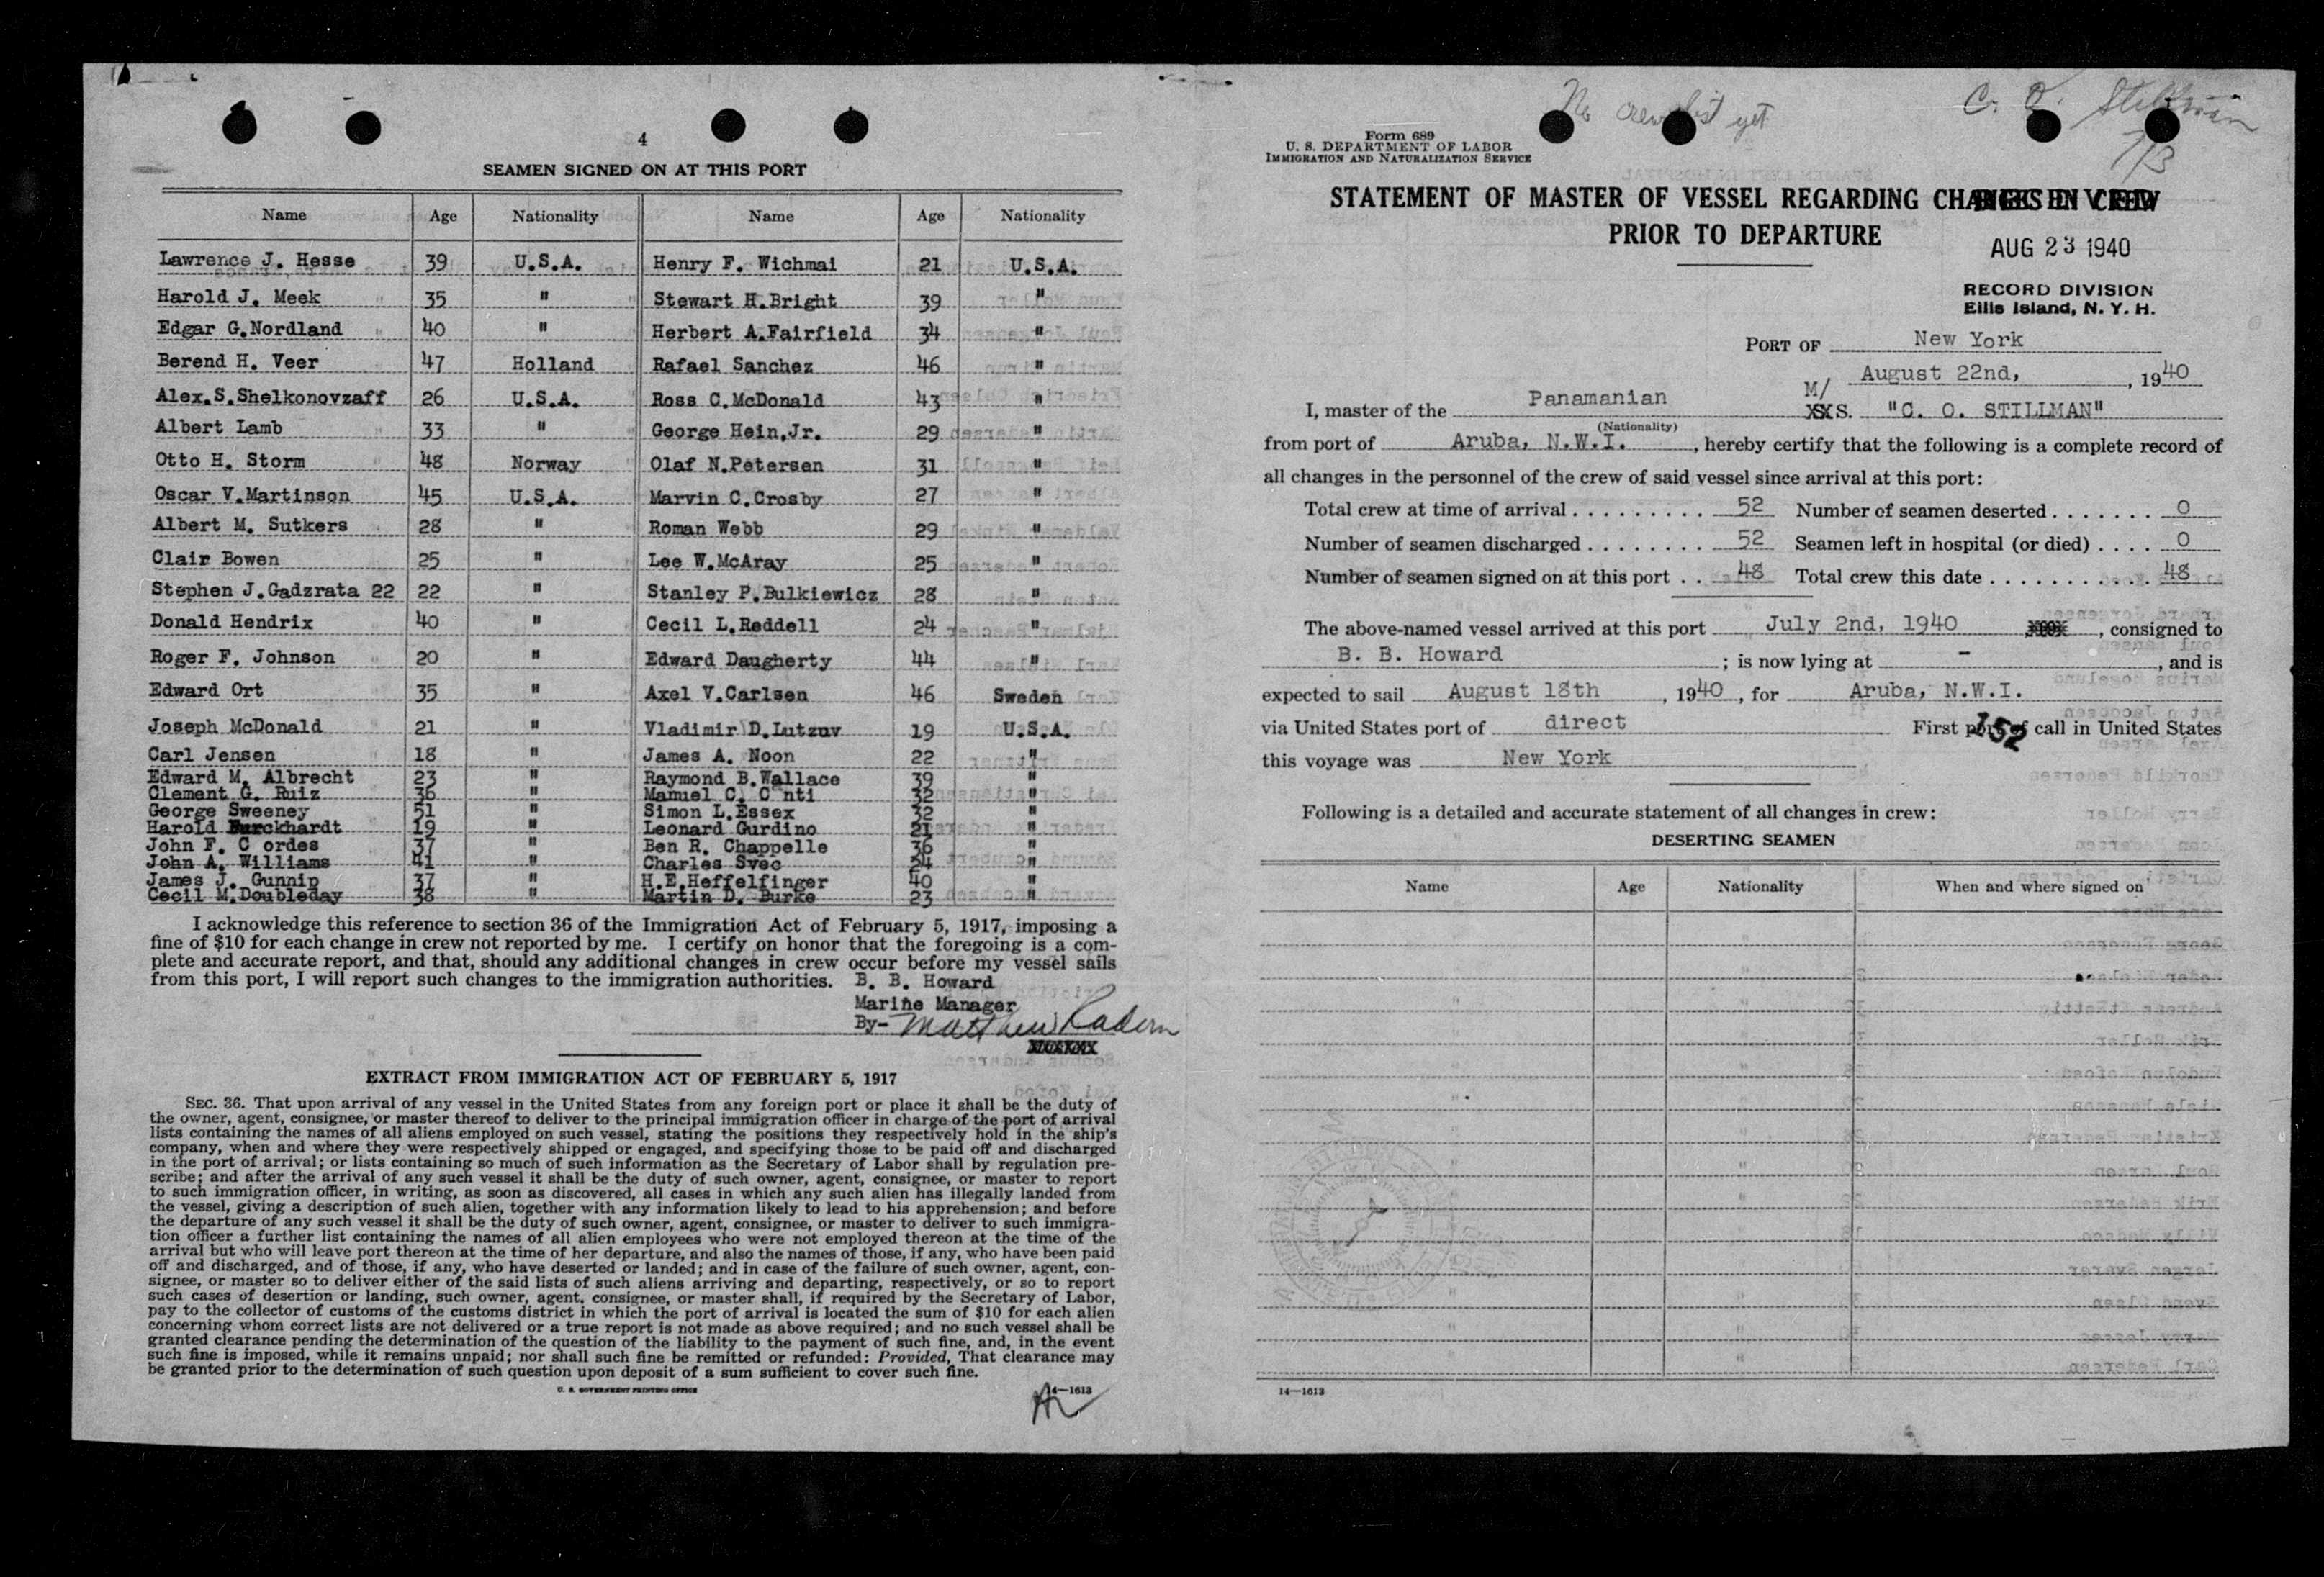 4
SEAMEN SIGNED ON AT THIS PORT
Name Age Nationality Name Age Nationality
Lawrence J. Hesse 39 U.S.A. Henry F. Wichmai 21 U.S.A.
Harold J. Meek 35 " Stewart H.Bright 39 "
Edgar G.Nordland 40 " Herbert A.Fairfield 34 "
Berend H. Veer 47 Holland Rafael Sanchez 46 "
Alex.S.Shelkonovzaff 26 U.S.A. Ross C.McDonald 43 "
Albert Lamb 33 " George Hein,Jr. 29 "
Otto H. Storm 48 Norway Olaf N.Petersen 31 "
Oscar V.Martinson 45 U.S.A. Marvin C.Crosby 27 "
Albert M. Sutkers 28 " Roman Webb 29 "
Clair Bowen 25 " Lee W.McAray 25 "
Stephen J.Gadzrata 22 22 " Stanley P.Bulkiewicz 28 "
Donald Hendrix 40 " Cecil L.Reddell 24 "
Roger F. Johnson 20 " Edward Daugherty 44 "
Edward Ort 35 " Axel V.Carlsen 46 Sweden
Joseph McDonald 21 " Vladimir D.Lutzuv 19 U.S.A.
Carl Jensen 18 " James A. Noon 22 "
Edward M. Albrecht 23 " Raymond B.Wallace 39 "
Clement G. Ruiz 36 " Manuel C. C nti 32 "
George Sweeney 51 " Simon L.Essex 32 "
Harold Burckhardt 19 " Leonard Gurdino 21 "
John F. C ordes 37 " Ben R. Chappelle 36 "
John A. Williams 41 " Charles Svec 24 "
James J. Gunnip 37 " H.E.Heffelfinger 40 "
Cecil M.Doubleday 38 " Martin D. Burke 23 "
I acknowledge this reference to section 36 of the Immigration Act of February 5, 1917, imposing a
fine of $10 for each change in crew not reported by me. I certify on honor that the foregoing is a com-
plete and accurate report, and that, should any additional changes in crew occur before my vessel sails
from this port, I will report such changes to the immigration authorities. B. B. Howard
Marine Manager
By- Matthew Radern
EXTRACT FROM IMMIGRATION ACT OF FEBRUARY 5, 1917
SEC. 36. That upon arrival of any vessel in the United States from any foreign port or place it shall be the duty of
the owner, agent, consignee, or master thereof to deliver to the principal immigration officer in charge of the port of arrival
lists containing the names of all aliens employed on such vessel, stating the positions they respectively hold in the ship's
company, when and where they were respectively shipped or engaged, and specifying those to be paid off and discharged
in the port of arrival; or lists containing so much of such information as the Secretary of Labor shall by regulation pre-
scribe; and after the arrival of any such vessel it shall be the duty of such owner, agent, consignee, or master to report
to such immigration officer, in writing, as soon as discovered, all cases in which any such alien has illegally landed from
the vessel, giving a description of such alien, together with any information likely to lead to his apprehension; and before
the departure of any such vessel it shall be the duty of such owner, agent, consignee, or master to deliver to such immigra-
tion officer a further list containing the names of all alien employees who were not employed thereon at the time of the
arrival but who will leave port thereon at the time of her departure, and also the names of those, if any, who have been paid
off and discharged, and of those, if any, who have deserted or landed; and in case of the failure of such owner, agent, con-
signee, or master so to deliver either of the said lists of such aliens arriving and departing, respectively, or so to report
such cases of desertion or landing, such owner, agent, consignee, or master shall, if required by the Secretary of Labor,
pay to the collector of customs of the customs district in which the port of arrival is located the sum of $10 for each alien
concerning whom correct lists are not delivered or a true report is not made as above required; and no such vessel shall be
granted clearance pending the determination of the question of the liability to the payment of such fine, and, in the event
such fine is imposed, while it remains unpaid; nor shall such fine be remitted or refunded: Provided, That clearance may
be granted prior to the determination of such question upon deposit of a sum sufficient to cover such fine.
U. S. GOVERNMENT PRINTING OFFICE 14—1613
No crew list yet
C. O. Stillman
7/3
Form 689
U. S. DEPARTMENT OF LABOR
IMMIGRATION AND NATURALIZATION SERVICE
STATEMENT OF MASTER OF VESSEL REGARDING CHANGES IN CREW
PRIOR TO DEPARTURE
RECEIVED
AUG 23 1940
RECORD DIVISION
Ellis Island, N. Y. H.
PORT OF New York
August 22nd, , 1940
I, master of the Panamanian M/ XX S. "C. O. STILLMAN"
(Nationality)
from port of Aruba, N.W.I. , hereby certify that the following is a complete record of
all changes in the personnel of the crew of said vessel since arrival at this port:
Total crew at time of arrival . . . . . . . . . 52 Number of seamen deserted . . . . . . . 0
Number of seamen discharged . . . . . . . . 52 Seamen left in hospital (or died) . . . . 0
Number of seamen signed on at this port . . 48 Total crew this date . . . . . . . . . . . . 48
The above-named vessel arrived at this port July 2nd, 1940 , consigned to
B. B. Howard ; is now lying at - , and is
expected to sail August 18th , 1940 , for Aruba, N.W.I.
via United States port of direct First port of call in United States
152
this voyage was New York
Following is a detailed and accurate statement of all changes in crew:
DESERTING SEAMEN
Name Age Nationality When and where signed on
14—1613